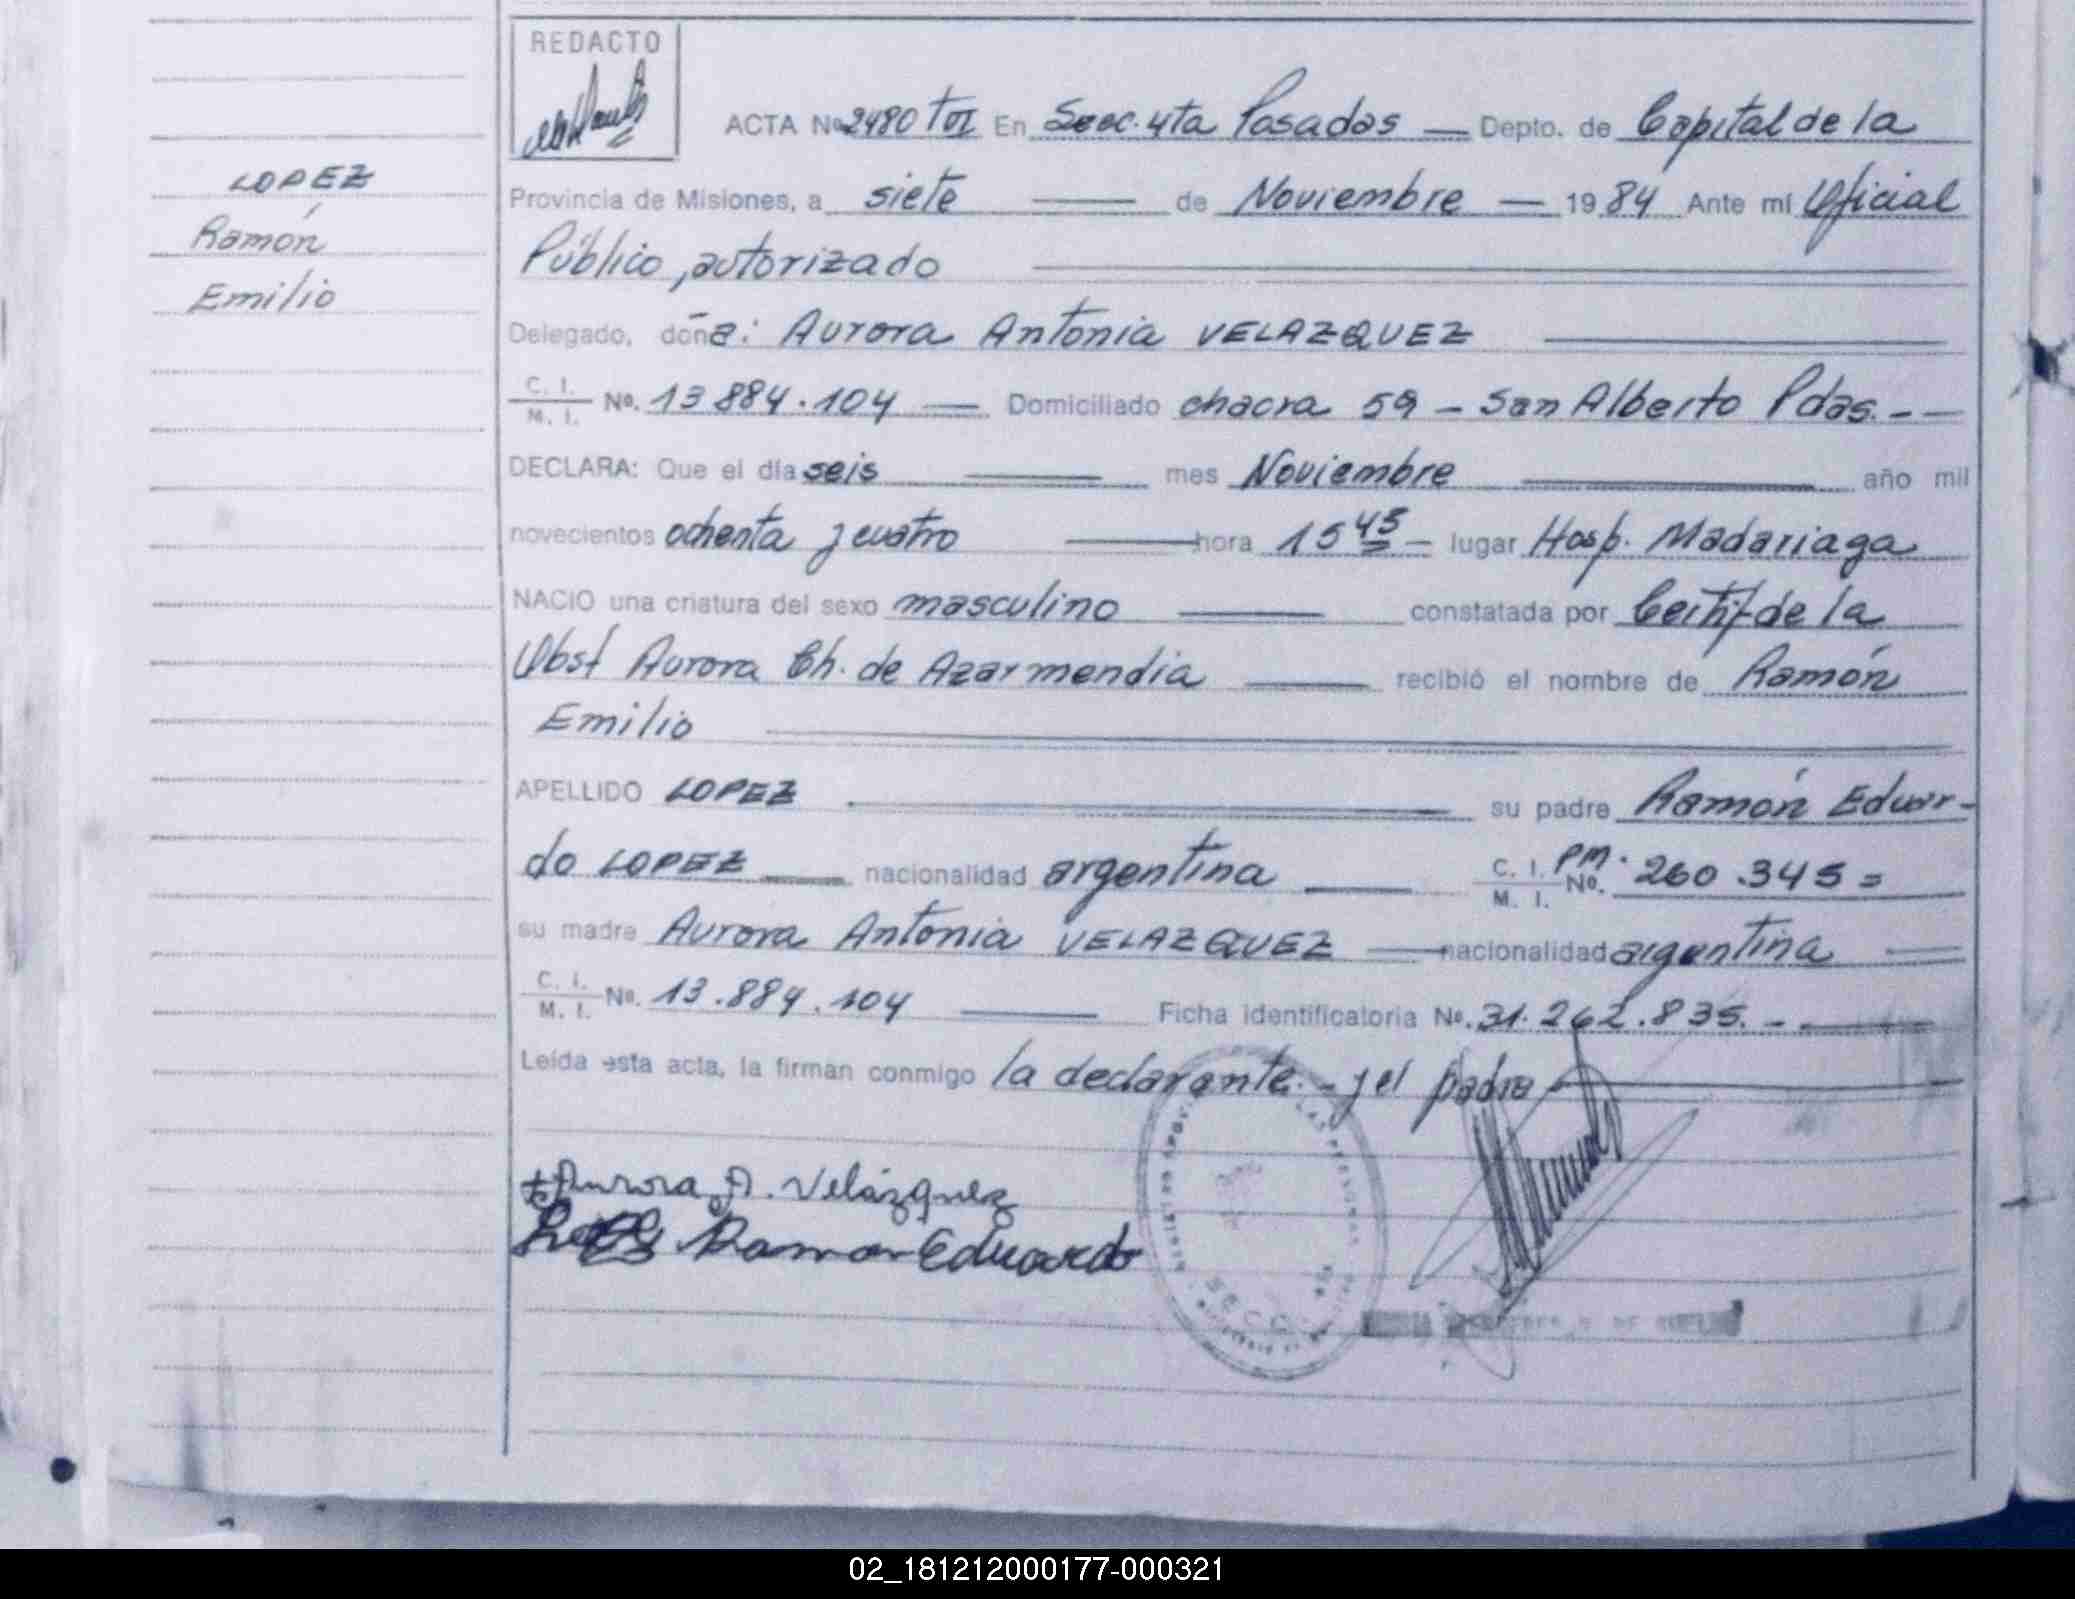 REDACTO
ACTA Nº 2480 TVI En Secc. 4ta Posadas — Depto. de Capital de la
LOPEZ
Provincia de Misiones, a siete de Noviembre — 1984 Ante mí Oficial
Ramón
Público, autorizado
Emilio
Delegado, doña: Aurora Antonia VELAZQUEZ
C. I. / M. I. Nº. 13 884.104 — Domiciliado chacra 59 - San Alberto Pdas. - -
DECLARA: Que el día seis mes Noviembre año mil
novecientos ochenta y cuatro hora 15 45 - lugar Hosp. Madariaga
NACIO una criatura del sexo masculino constatada por Certif de la
Obst Aurora Ch. de Azarmendia recibió el nombre de Ramón
Emilio
APELLIDO LOPEZ su padre Ramón Eduar-
do LOPEZ nacionalidad argentina C. I. / M. I. Nº. PM. 260.345 =
su madre Aurora Antonia VELAZQUEZ nacionalidad argentina
C. I. / M. I. Nº. 13.884.104 Ficha identificatoria Nº. 31.262.835. -
Leída esta acta, la firman conmigo la declarante. - y el padre
Aurora A. Velázquez
Ramon Eduardo
SECC
02_181212000177-000321